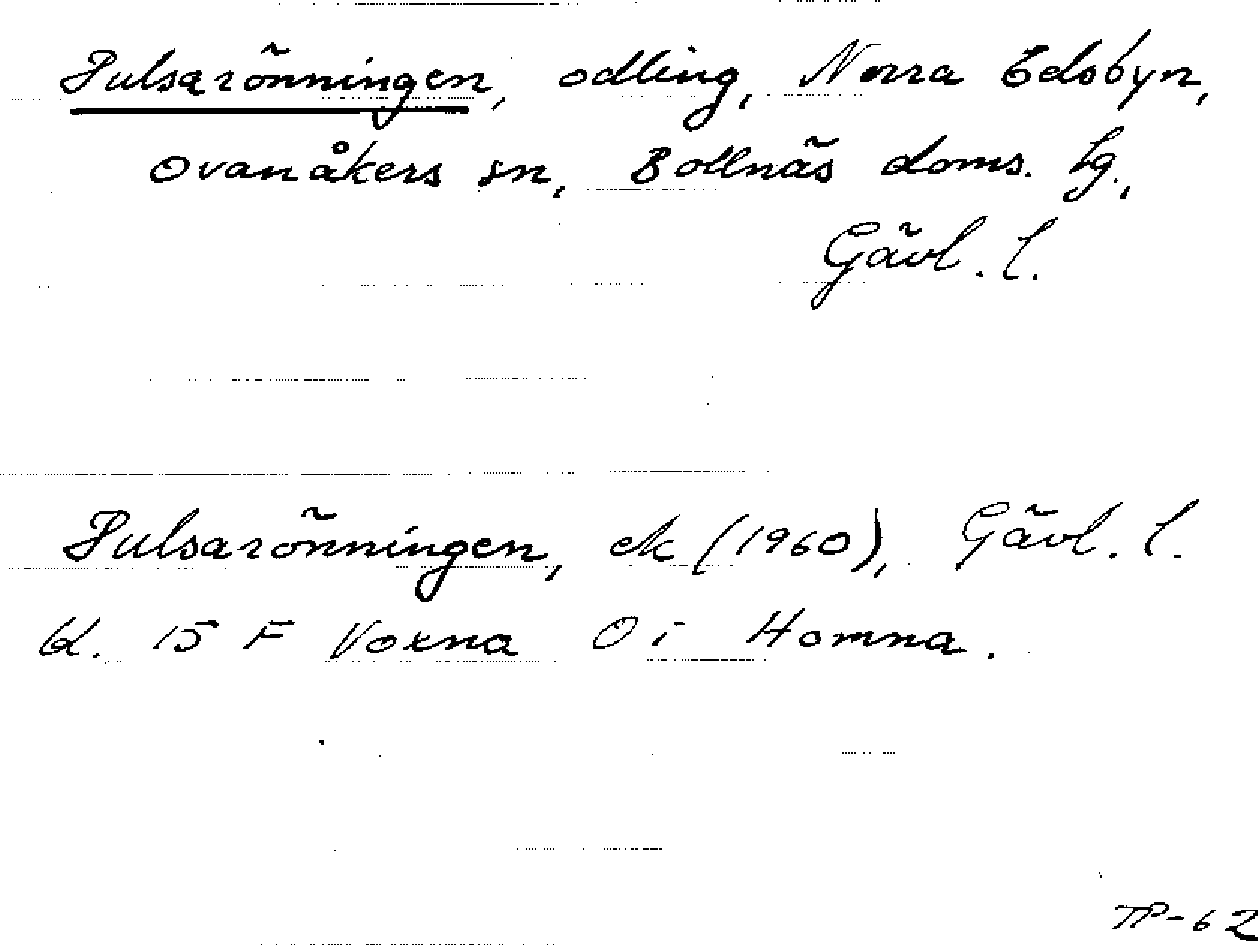 Pulsarönningen, odling, Norra Edsbyn,
Ovanåkers sn, Bollnäs doms. lg.,
Gävl. l.
Pulsarönningen, ek (1960), Gävl. l.
bl. 15 F Voxna O i Homna.
TP-62